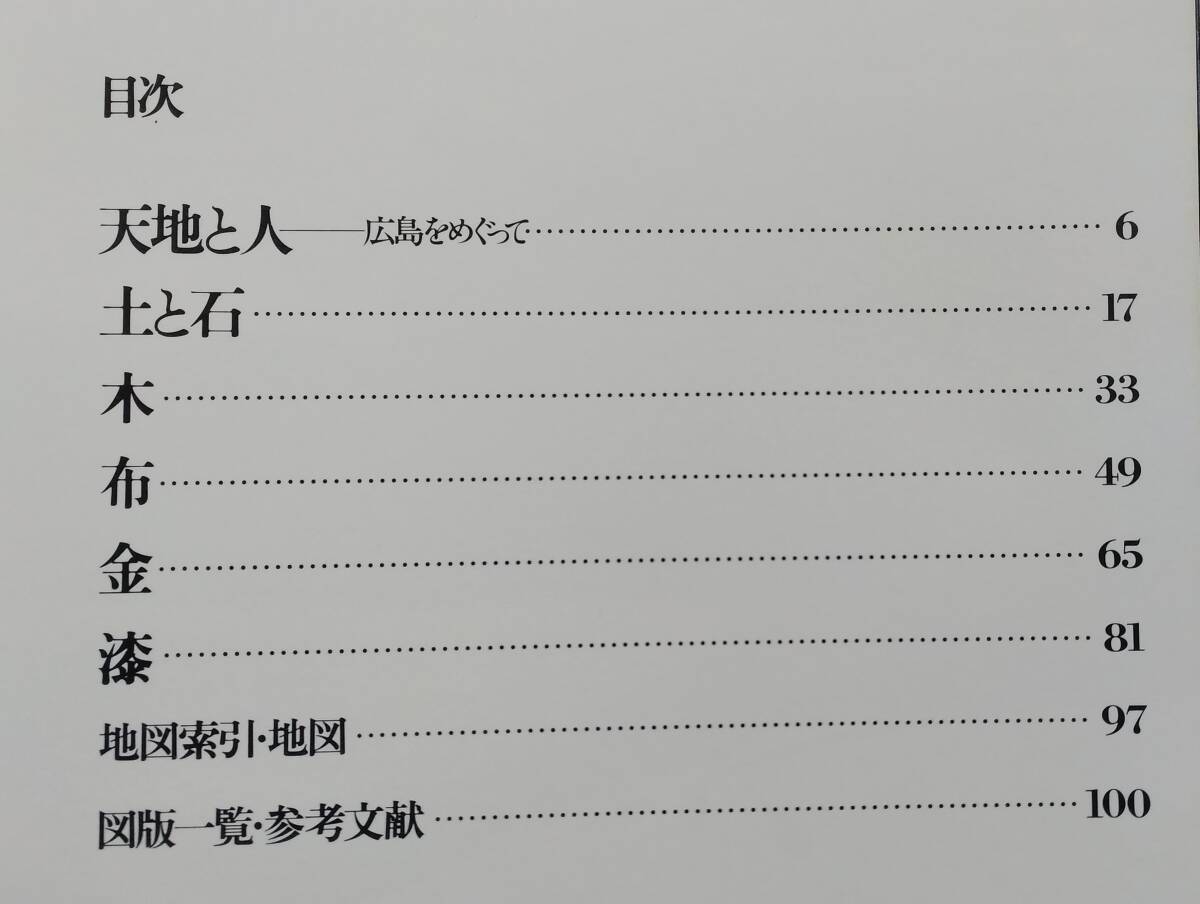 目次
天地と人——広島をめぐって…… 6
土と石…… 17
木…… 33
布…… 49
金…… 65
漆…… 81
地図索引・地図…… 97
図版一覧・参考文献…… 100